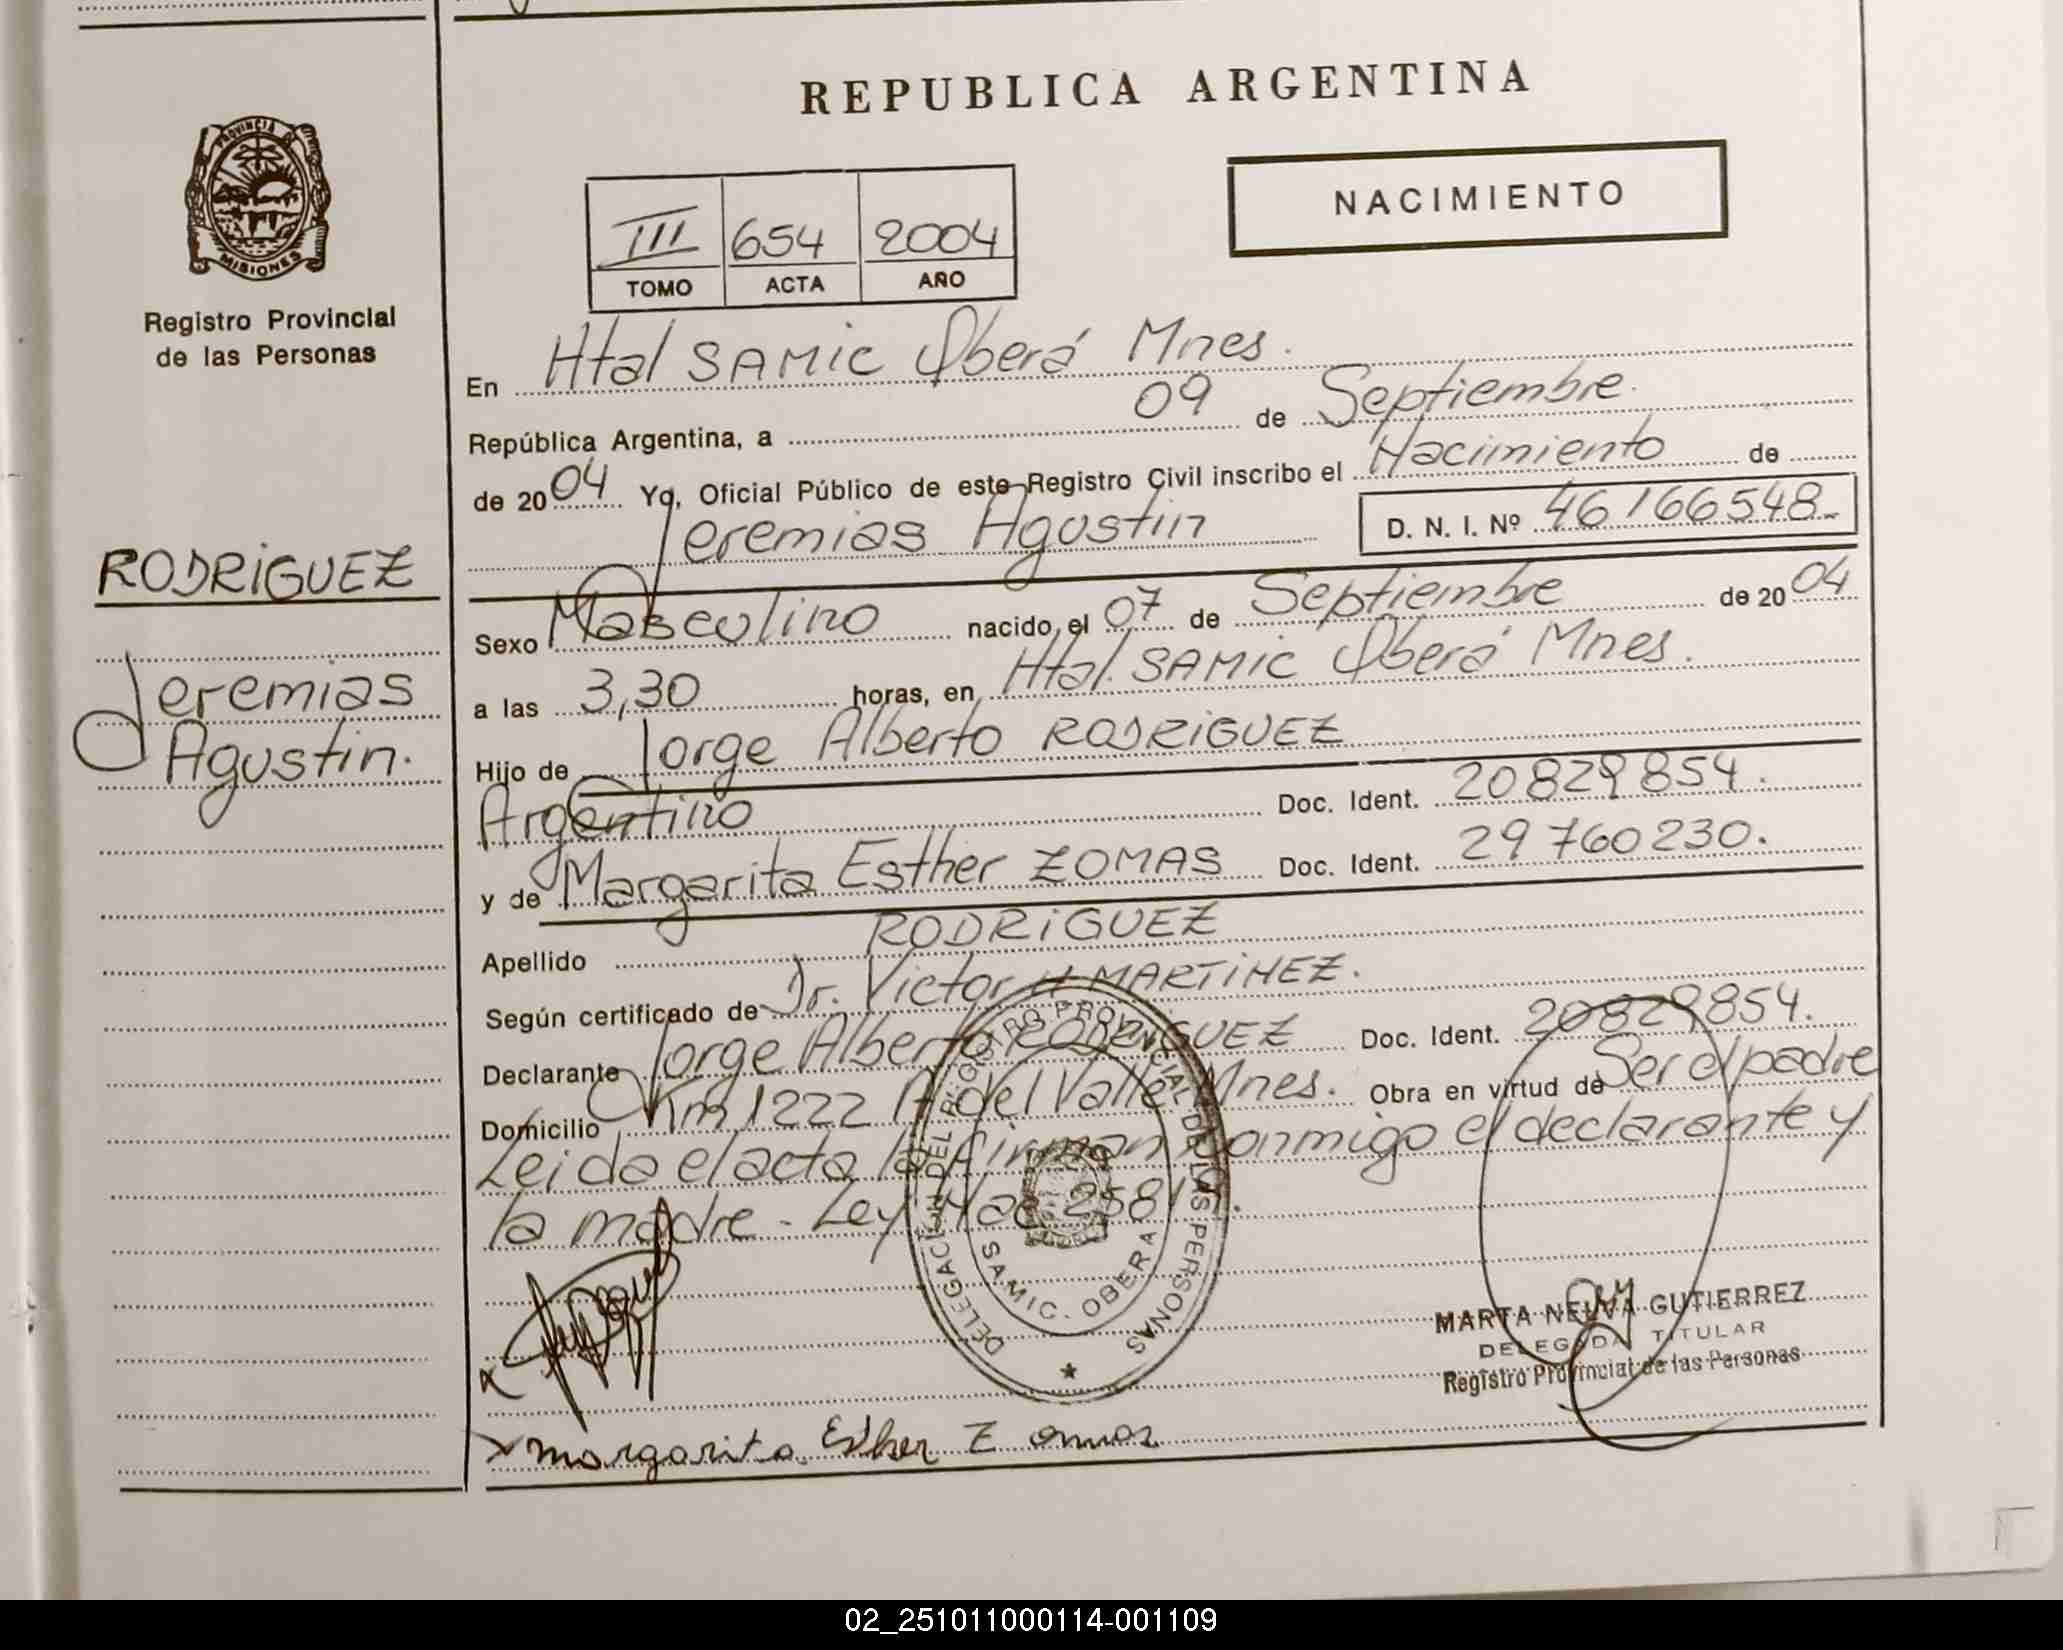 REPUBLICA ARGENTINA
NACIMIENTO
III 654 2004
TOMO ACTA AÑO
PROVINCIA DE
MISIONES
Registro Provincial
de las Personas
RODRiGUEZ
Jeremias
Agustin.
En Htal SAMiC Oberá Mnes.
República Argentina, a 09 de Septiembre.
de 2004 Yo, Oficial Público de este Registro Civil inscribo el Nacimiento de
Jeremias Agustin D. N. I. Nº 46166548-
Sexo Masculino nacido, el 07 de Septiembre de 2004
a las 3,30 horas, en Htal. SAMiC Oberá Mnes.
Hijo de Jorge Alberto RODRiGUEZ
Argentino Doc. Ident. 20829854.
y de Margarita Esther ZOMAS Doc. Ident. 29760230.
Apellido RODRiGUEZ
Según certificado de Dr. Victor H MARTiNEZ.
Declarante Jorge Alberto RODRiGUEZ Doc. Ident. 20829854.
Domicilio Km 1222 A del Valle Mnes. Obra en virtud de Ser el padre
Leida el acta la firman conmigo el declarante y
la madre - Ley Nac
DELEGACION DEL REGISTRO PROVINCIAL DE LAS PERSONAS
SAMIC. OBERA
MARTA NELVA GUTIERREZ
DELEGADA TITULAR
Registro Provincial de las Personas
x
x margarita Esther Zomas
02_251011000114-001109